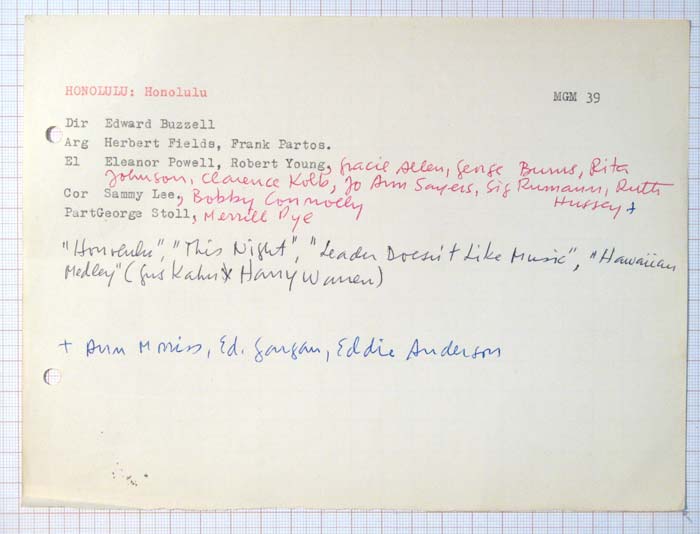 HONOLULU: Honolulu MGM 39
Dir Edward Buzzell
Arg Herbert Fields, Frank Partos.
El Eleanor Powell, Robert Young, Gracie Allen, George Burns, Rita
Johnson, Clarence Kolb, Jo Ann Sayers, Sig Rumann, Ruth
Hussey +
Cor Sammy Lee, Bobby Connolly
PartGeorge Stoll, Merrill Pye
"Honolulu", "This Night", "Leader Doesn't Like Music", "Hawaiian
Medley" (Gus Kahn Harry Warren)
+ Ann Morriss, Ed. Gargan, Eddie Anderson